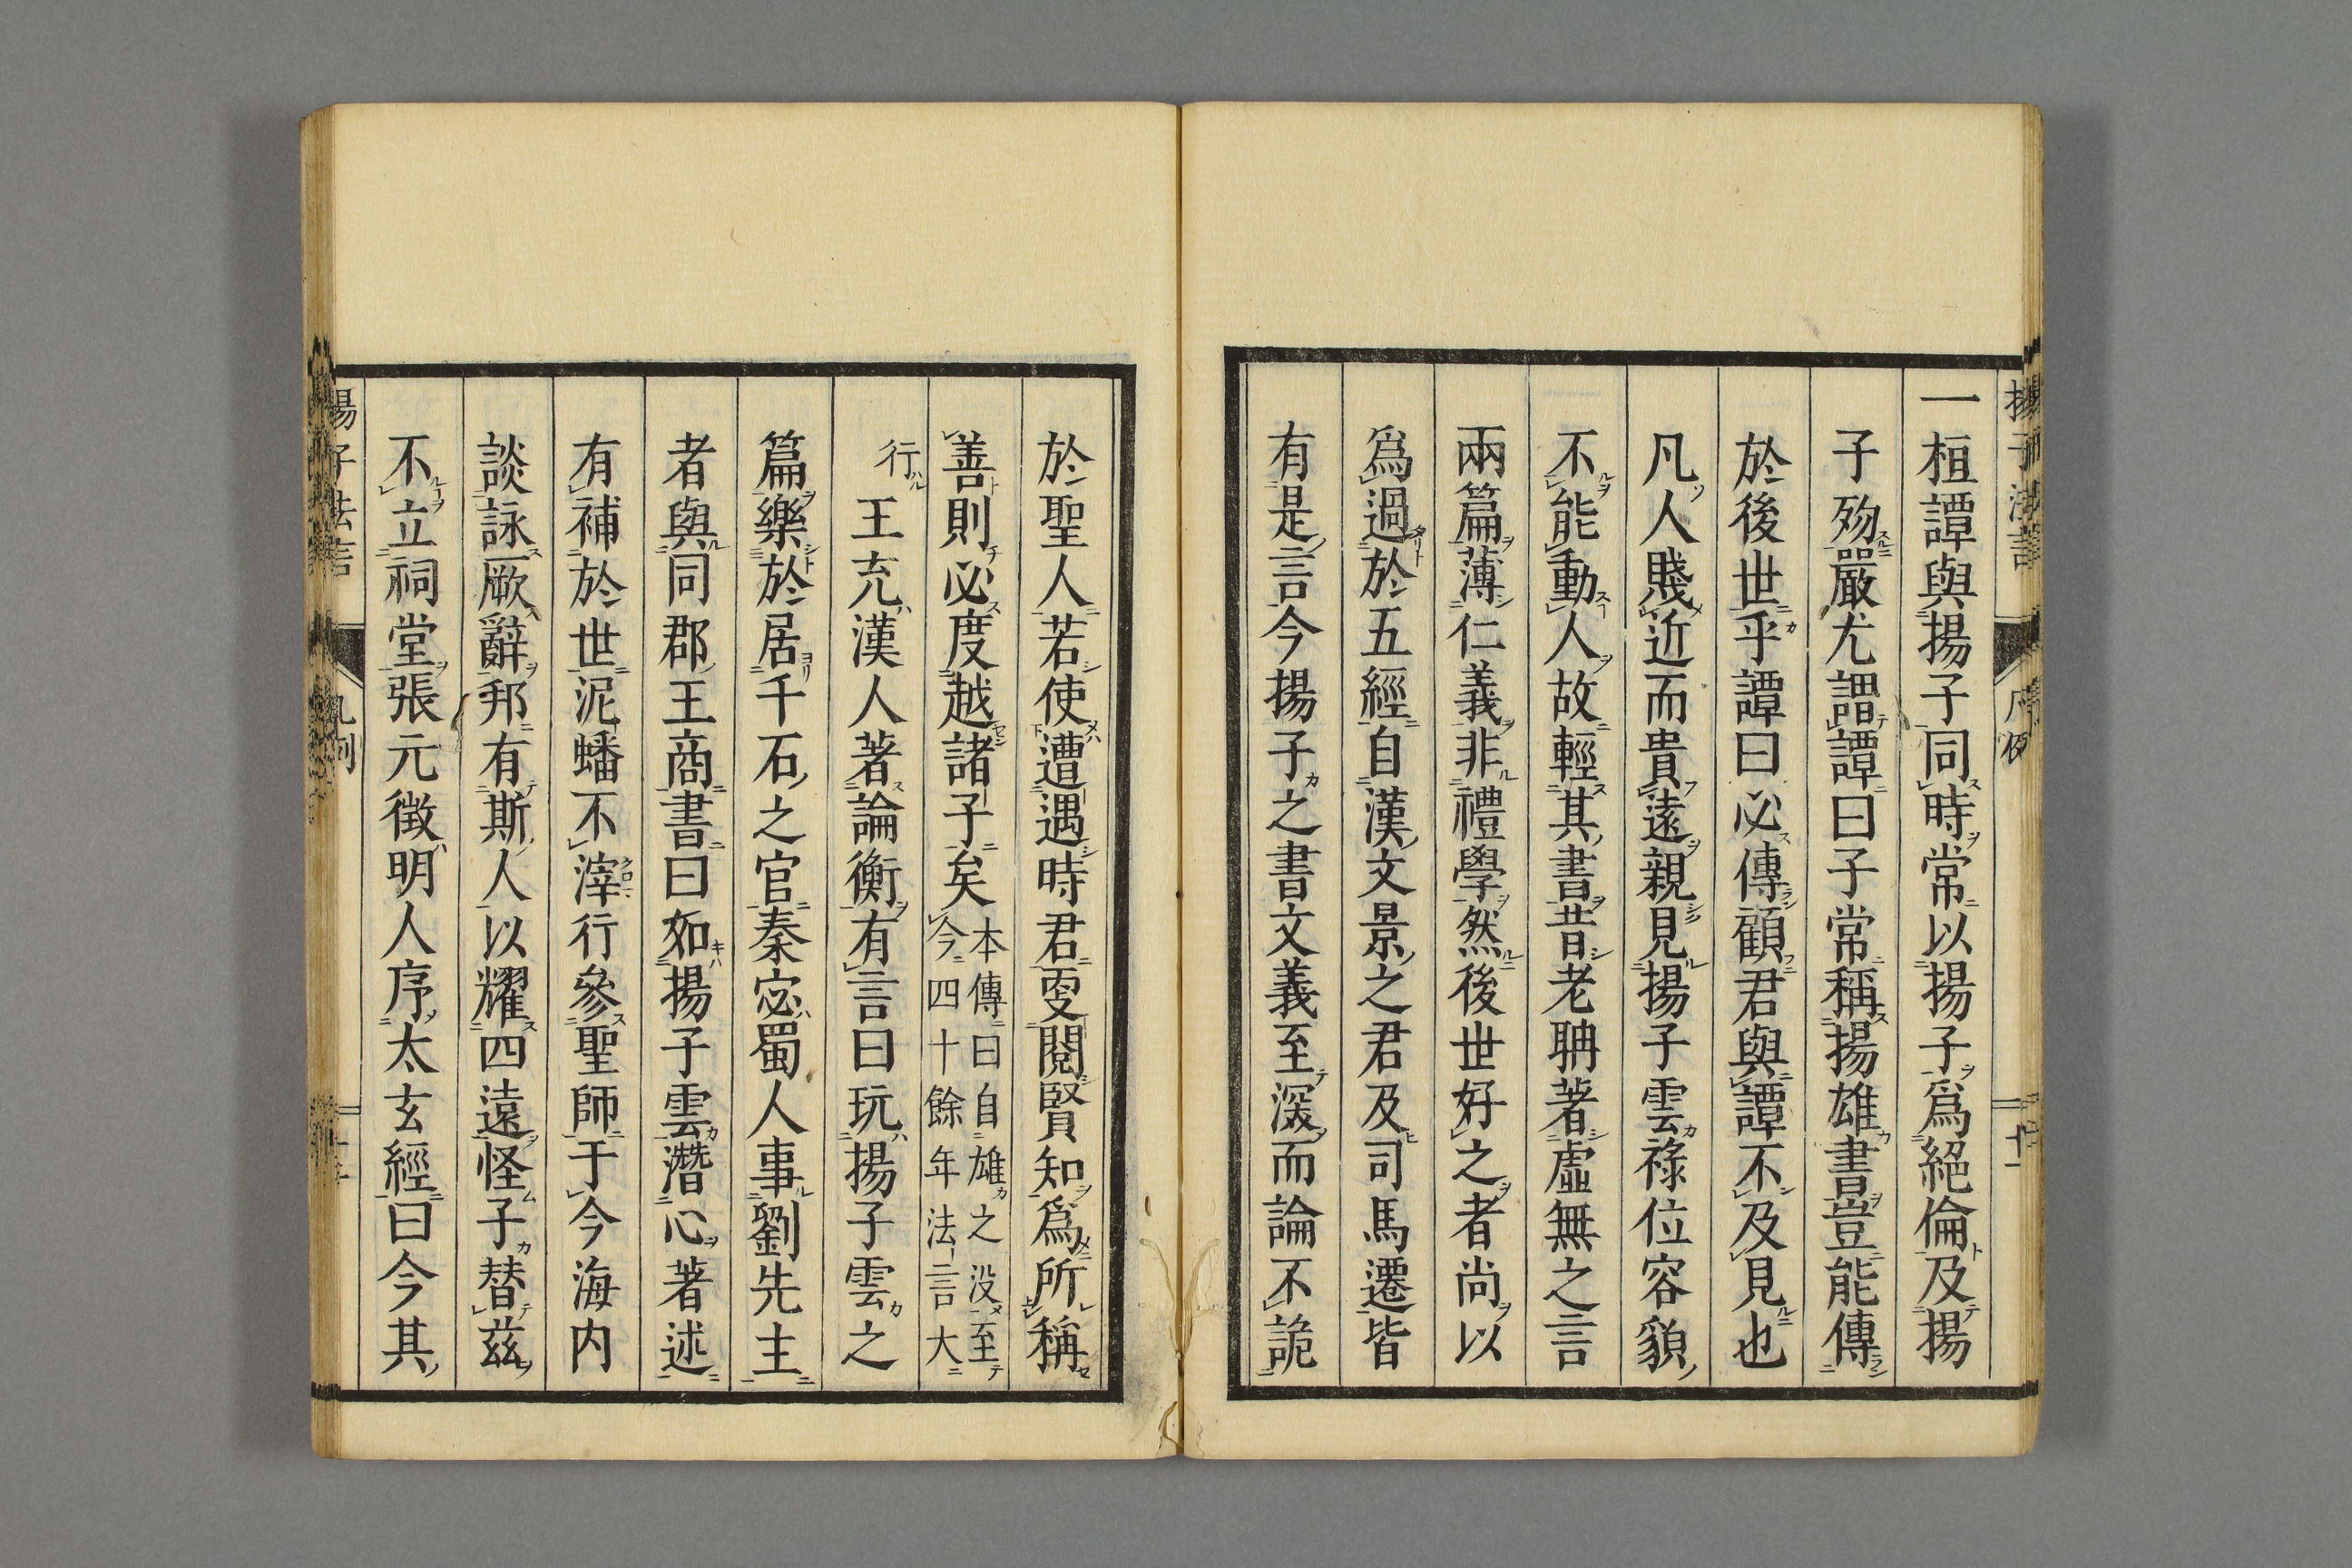 一桓譚與揚子同時常以揚子爲絕倫及揚
子歾嚴尤謂譚曰子常稱揚雄書豈能傳
於後世乎譚曰必傳顧君與譚不及見也
凡人賤近而貴遠親見揚子雲祿位容貌
不能動人故輕其書昔老聃著虛無之言
兩篇薄仁義非禮學然後世好之者尚以
爲過於五經自漢文景之君及司馬遷皆
有是言今揚子之書文義至深而論不詭
於聖人若使遭遇時君更閱賢知爲所稱
善則必度越諸子矣本傳曰自雄之沒至今四十餘年法言大
行王充漢人著論衡有言曰玩揚子雲之
篇樂於居千石之官秦宓蜀人事劉先主
者與同郡王商書曰如揚子雲潛心著述
有補於世泥蟠不滓行參聖師于今海内
談詠厥辭邦有斯人以耀四遠怪子替茲
不立祠堂張元徵明人序太玄經曰今其
揚子法言
凡例